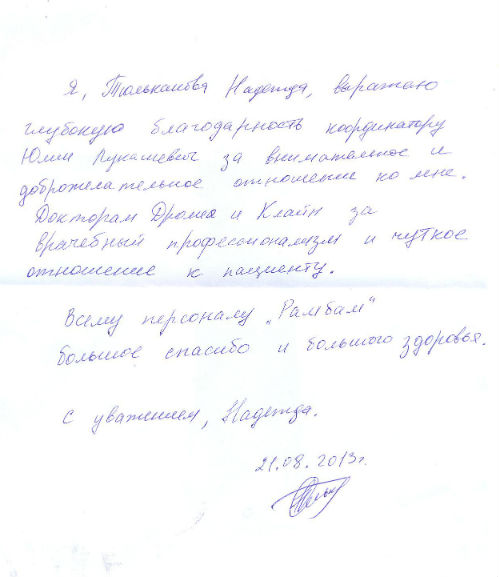 Я, Тюльканова Надежда, выражаю
глубокую благодарность координатору
Юлии Лукашевич за внимательное и
доброжелательное отношение ко мне.
Докторам и Клайн за
врачебный профессионализм и чуткое
отношение к пациенту.
Всему персоналу „Рамбам“
большое спасибо и большого здоровья.
С уважением, Надежда.
21.08.2013г.